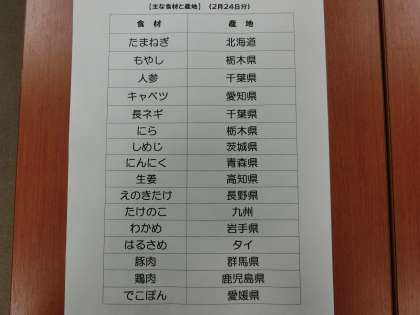 【主な食材と産地】 (2月24日分)
食 材 産 地
たまねぎ 北海道
もやし 栃木県
人参 千葉県
キャベツ 愛知県
長ネギ 千葉県
にら 栃木県
しめじ 茨城県
にんにく 青森県
生姜 高知県
えのきたけ 長野県
たけのこ 九州
わかめ 岩手県
はるさめ タイ
豚肉 群馬県
鶏肉 鹿児島県
でこぽん 愛媛県